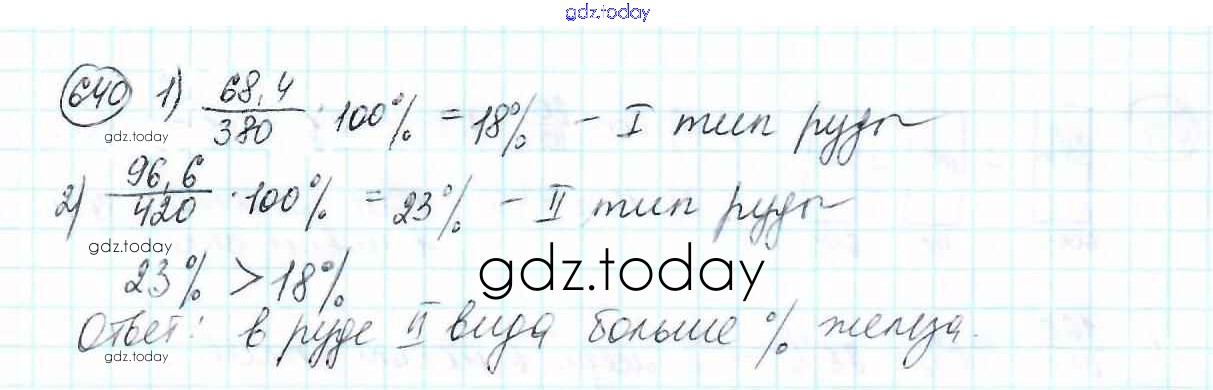 gdz.today
640 1) 68,4/380 · 100% = 18% – I тип руды
gdz.today
2) 96,6/420 · 100% = 23% – II тип руды
gdz.today
23% > 18%
gdz.today
Ответ: в руде II вида больше % железа.
gdz.today